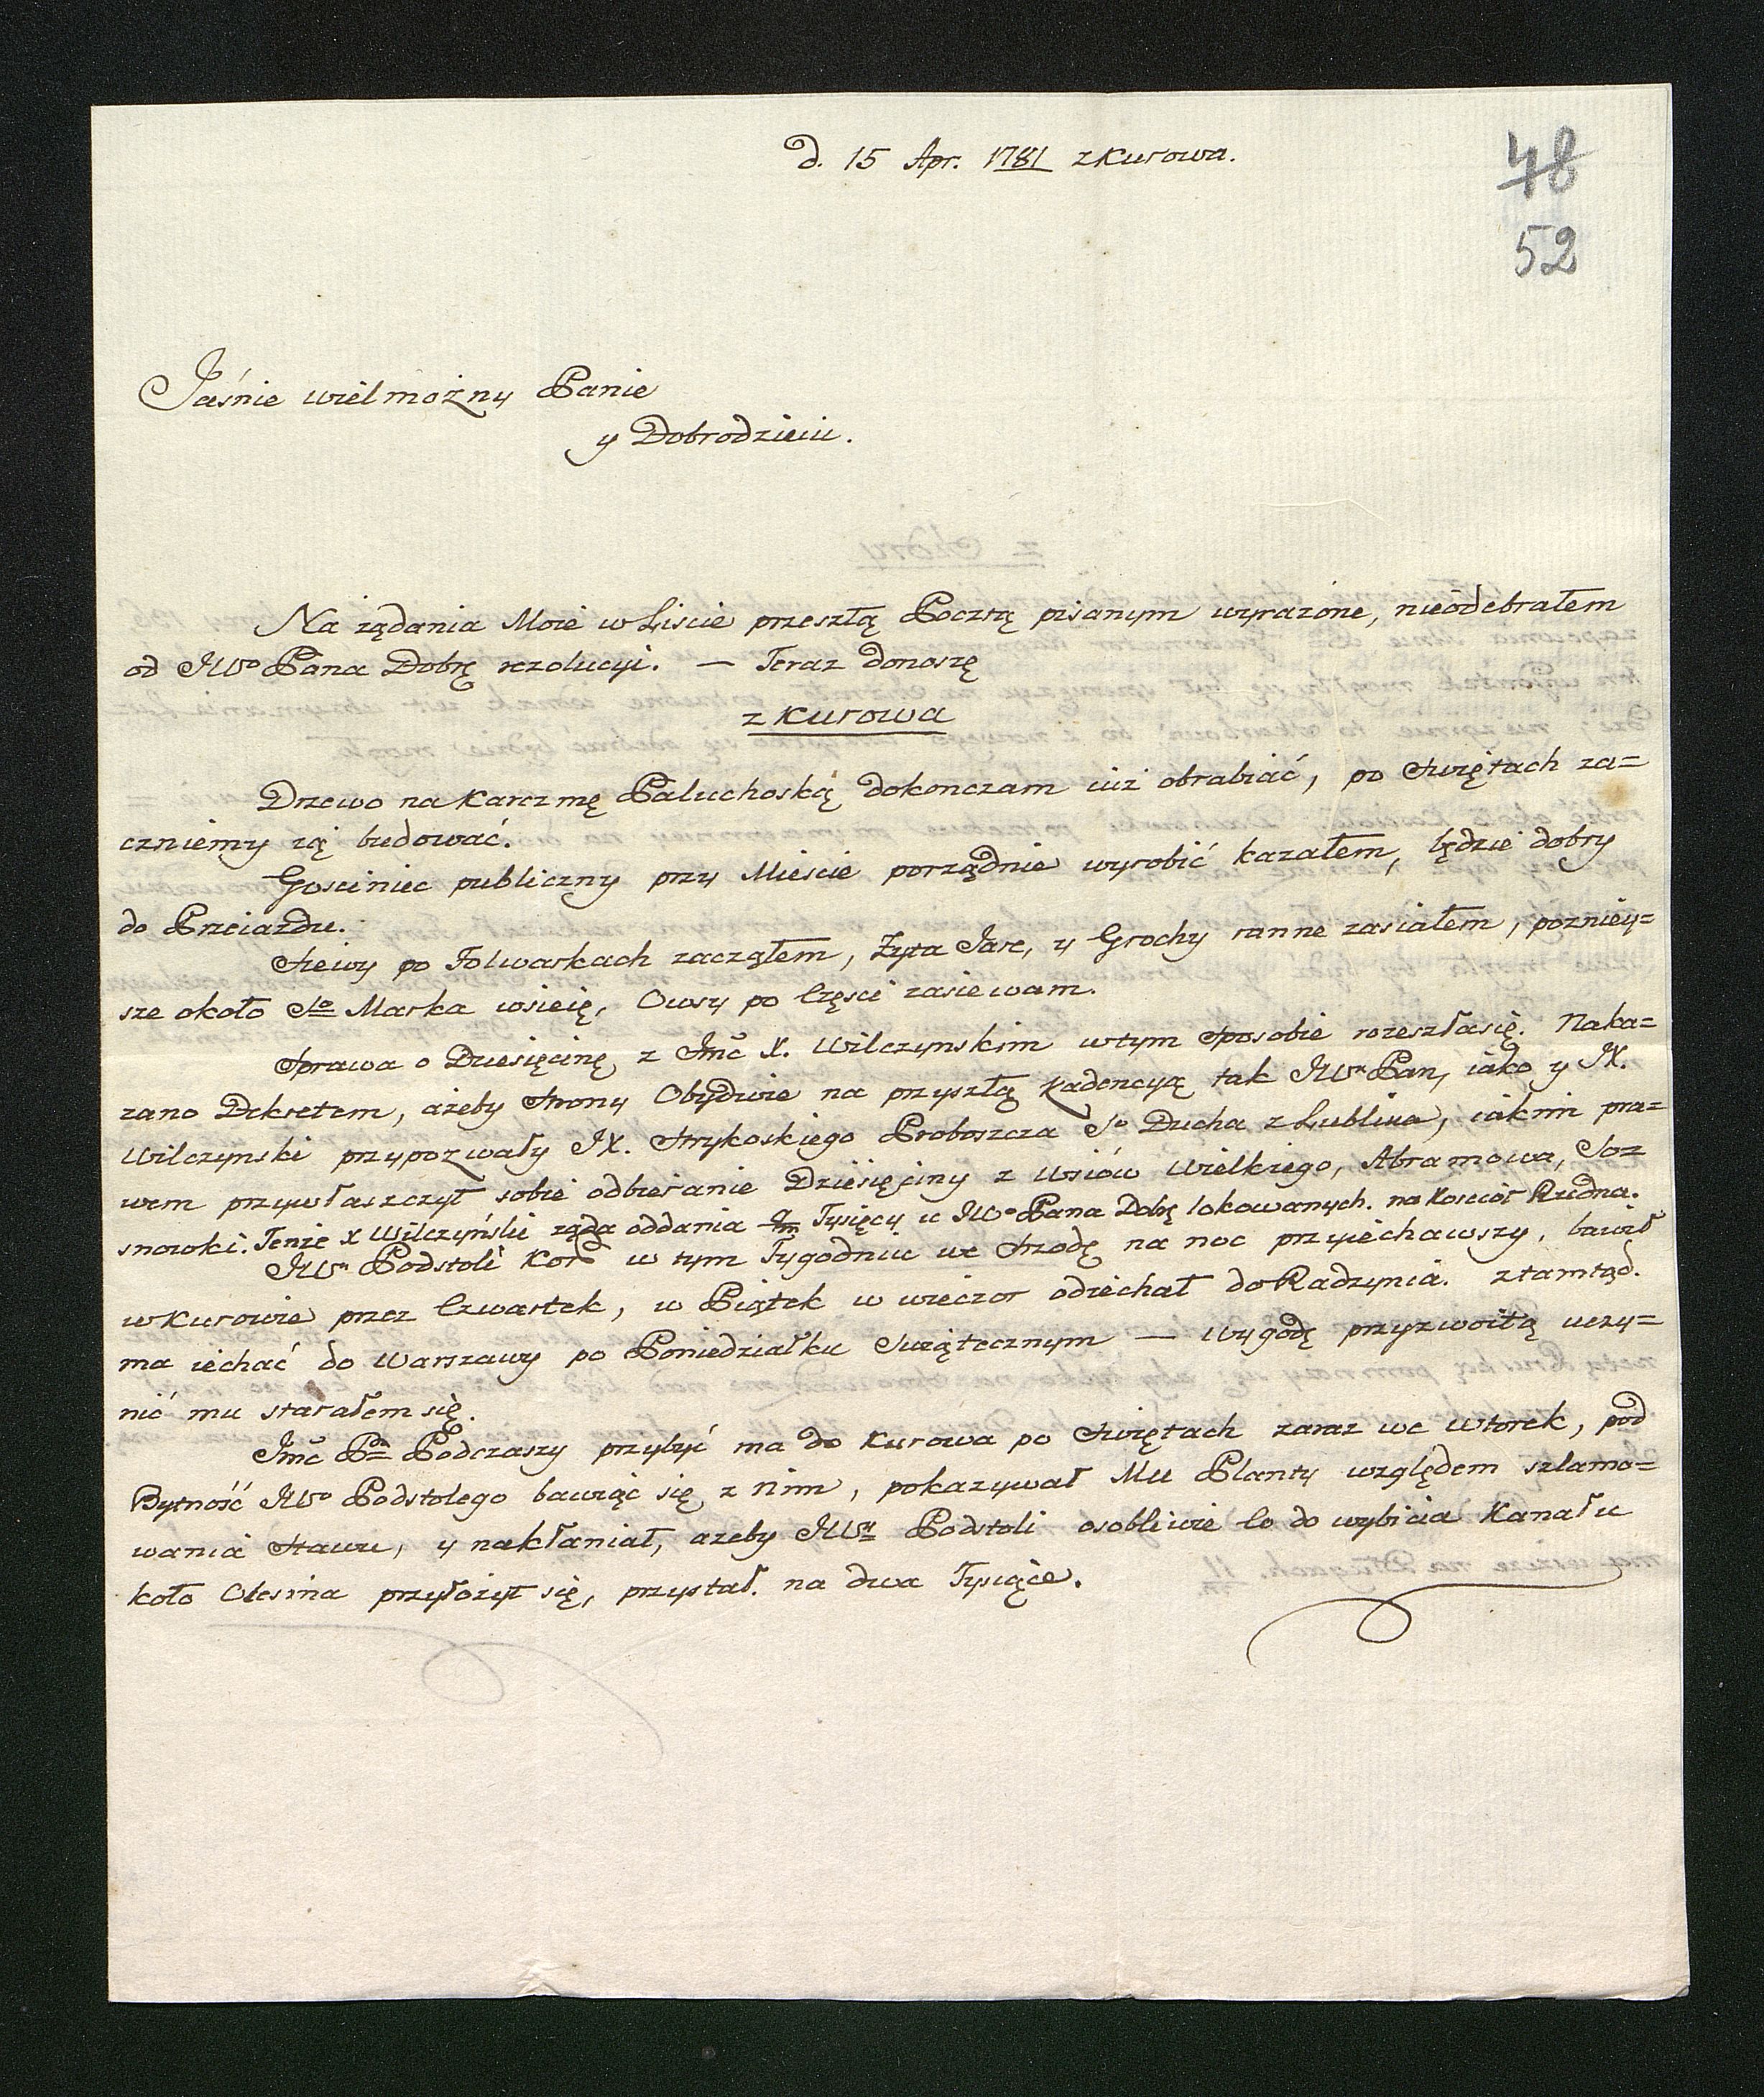 d. 15 Apr. 1781 z Kurowa.
48
52
Jaśnie wielmożny Panie
y Dobrodzieiu.
Na żądania Moie w Liscie przeszłą Pocztą pisanym wyrażone, nieodebrałem
od JWo Pana Dobrę rezolucyi. — Teraz donoszę
z Kurowa
Drzewo na Karczmę Paluchoską dokonczam iuż obrabiać, po Swiętach za=
czniemy ią budować.
Gosciniec publiczny przy Mieście porządnie wyrobić kazałem, będzie dobry
do Przeiazdu.
Siewy po Folwarkach zacząłem, Zyta Jare, y Grochy ranne zasiałem, pozniey=
sze około So Marka wsieię, Owsy po Częsci zasiewam.
Sprawa o Dziesięcinę z Jmć X. Wilczynskim w tym Sposobie rozeszłasię. Naka=
zano Dekretem, ażeby Strony Obydwie na przyszłą Kadencyą tak JWn Pan, iako y JX.
Wilczynski przypozwały JX. Strykoskiego Proboszcza So Ducha z Lublina, iakim pra=
wem przywłaszczył sobie odbieranie Dziesięciny z Wsiów Wielkiego, Abramowa, Soz
snowki. Tenże X Wilczyński ząda oddania Tysięcy u JWo Pana Dobę lokowanych. na Kosciół Rudna.
JWn Podstoli Kor w tym Tygodniu we Srzodę na noc przyiechawszy, bawił
w Kurowie przez Czwartek, w Piątek w wieczor odiechał do Radzynia. ztamtąd.
ma iechać do Warszawy po Poniedziałku Swiątecznym — wygodę przyzwoitą uczy=
nić mu starałem się.
Jmć Pn Podczaszy przybyć ma do Kurowa po Swiętach zaraz we wtorek, pod
Bytność JWo Podstolego bawiąc się z nim, pokazywał Mu Planty względem szlamo=
wania Stawu, y nakłaniał, azeby JWn Podstoli osobliwie Co do wybicia Kanału
koło Olesina przyłożył się, przystał. na dwa Tysiące.